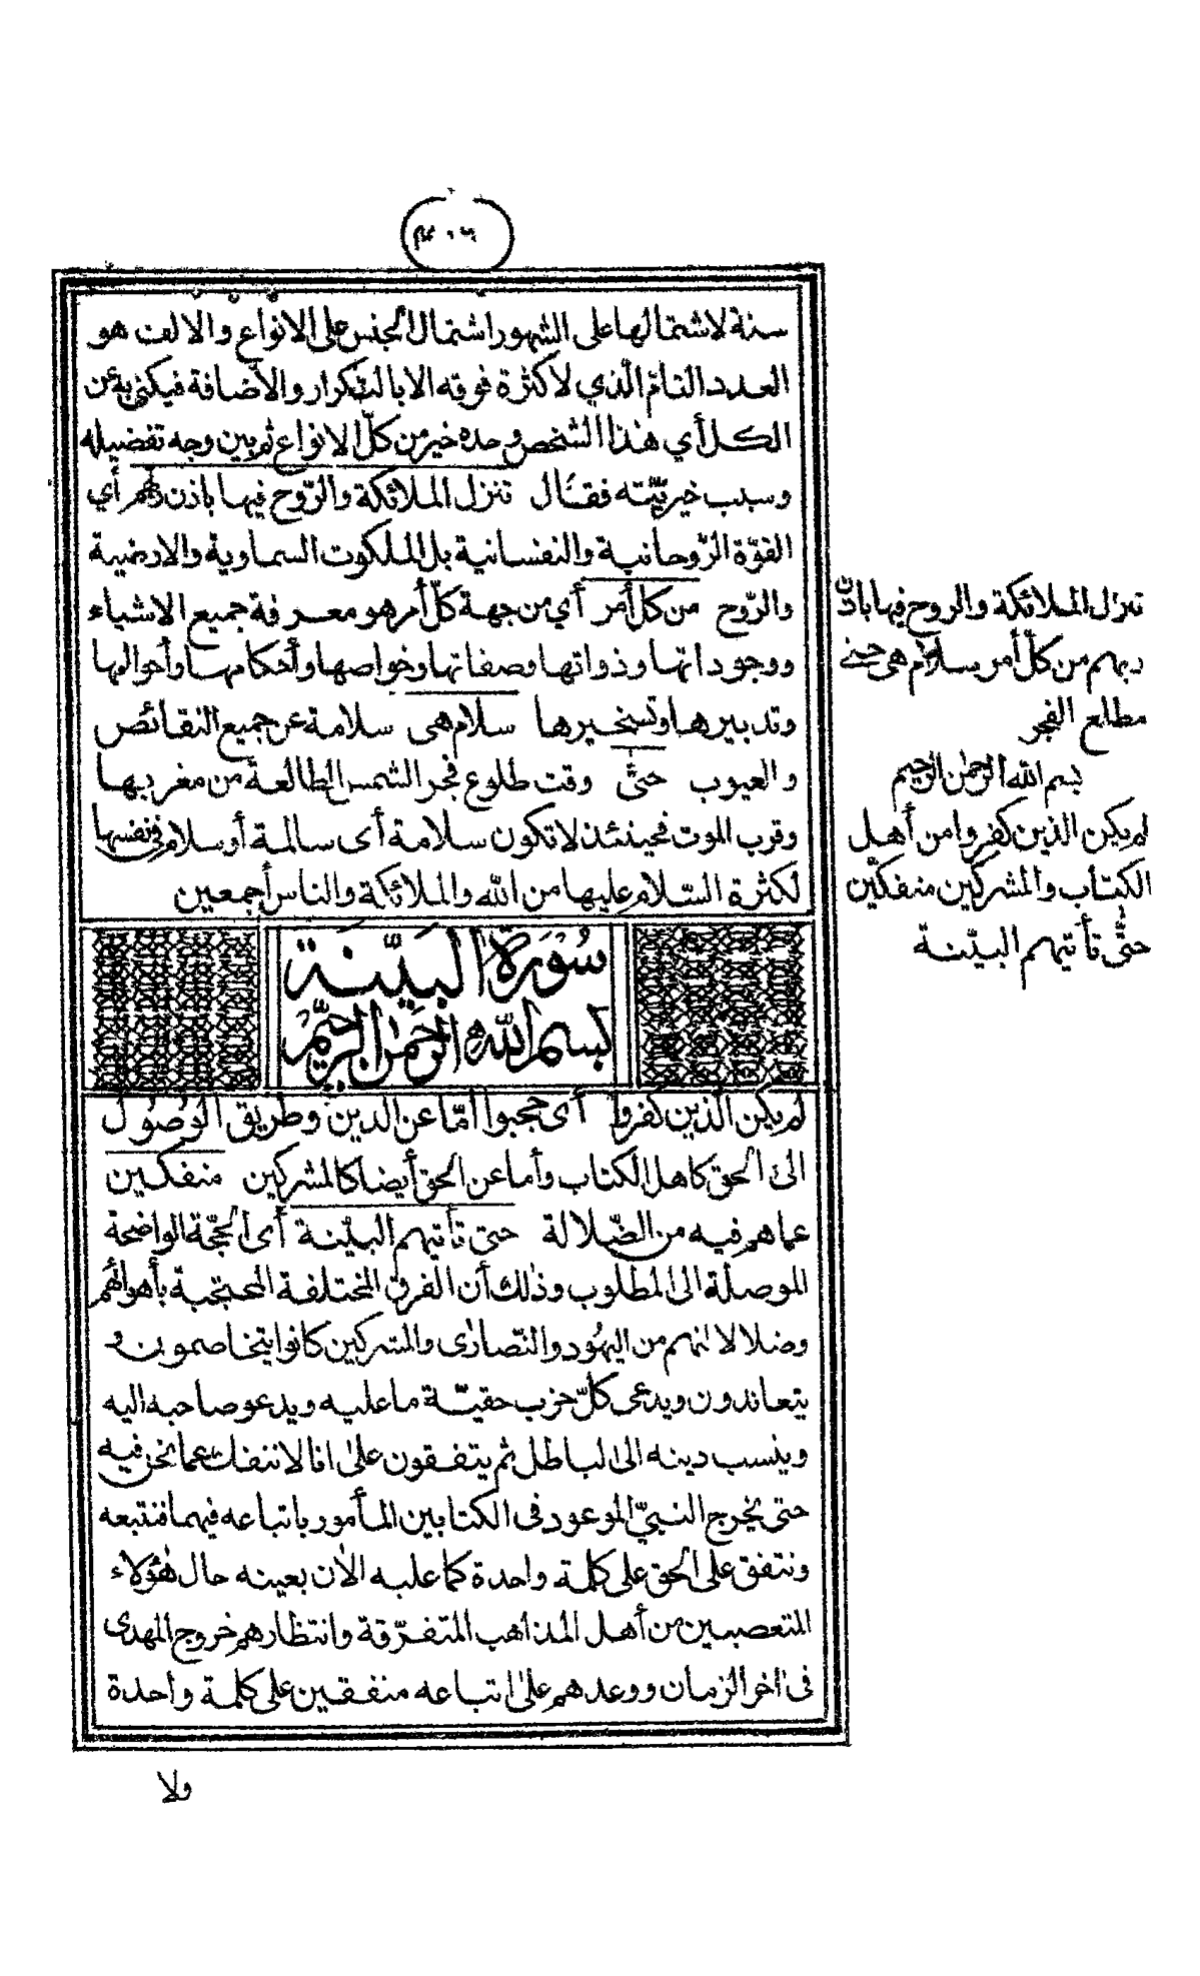 سنة لاشتمالها على الشهور اشتمال الجنس على الانواع والالف هو
العدد التامّ الّذي لا كثرة فوقه الا بالتكرار والاضافة فيكنى به عن
الكل أي هذا الشخص وحده خير من كلّ الانواع ثم بين وجه تفضيله
وسبب خيريّته فقال تنزل الملائكة والرّوح فيها باذن ربهم أي
القوّة الرّوحانية والنفسانية بل الملكوت السماوية والارضية
والرّوح من كل أمر أي من جهة كلّ أمر هو معرفة جميع الاشياء
ووجوداتها وذواتها وصفاتها وخواصها وأحكامها وأحوالها
وتدبيرها وتسخيرها سلام هى سلامة عن جميع النقائص
والعيوب حتّى وقت طلوع فجر الشمس الطالعة من مغربها
وقرب الموت فحينئذ لا تكون سلامة أى سالمة أو سلام فى نفسها
لكثرة السّلام عليها من الله والملائكة والناس أجمعين
تنزل الملائكة والروح فيها باذن
ربهم من كلّ أمر سلام هى حتى
مطلع الفجر
بسم الله الرحمن الرحيم
لم يكن الذين كفروا من أهل
الكتاب والمشركين منفكّين
حتّى تأتيهم البيّنة
سُورَة البَيّنَة
بسم الله الرّحمن الرّحيم
لم يكن الّذين كفروا أى حجبوا امّا عن الدين وطريق الوُصُول
الى الحق كاهل الكتاب وأما عن الحق أيضا كالمشركين منفكين
عما هم فيه من الضّلالة حتى تأتيهم البيّنة أى الحجّة الواضحة
الموصلة الى المطلوب وذلك أن الفرق المختلفة المحتجبة بأهوائهم
وضلالاتهم من اليهُود والنّصارى والمشركين كانوا يتخاصمون و
يتعاندون ويدعى كلّ حزب حقيّة ما عليه ويدعو صاحبه اليه
وينسب دينه الى الباطل ثم يتفقون على انا لا ننفك عما نحن فيه
حتى يخرج النبىّ الموعود فى الكتابين المأمور باتباعه فيهما فنتبعه
ونتفق على الحق على كلمة واحدة كما عليه الآن بعينه حال هؤلاء
المتعصبين من أهل المذاهب المتفرّقة وانتظارهم خروج المهدى
فى آخر الزمان ووعدهم على اتباعه متفقين على كلمة واحدة
ولا